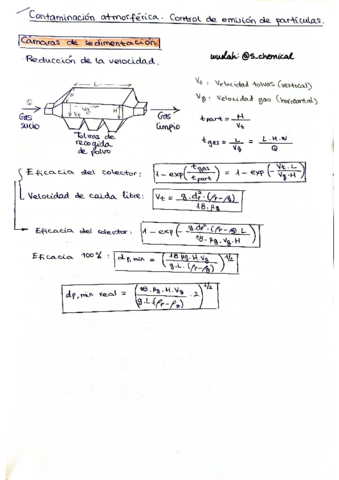 Contaminación atmosférica. Control de emisión de partículas.
Cámaras de sedimentación
wuolah: @s.chemical
· Reducción de la velocidad.
L
Vt: Velocidad tolvas (vertical)
Vg: Velocidad gas (horizontal)
Q
Vg
Vt
H
Gas sucio
Gas limpio
Tolvas de recogida de polvo
t part = H / Vt
t gas = L / Vg = L.H.W / Q
Eficacia del colector: 1 - exp(t gas / t part) = 1 - exp(Vt.L / Vg.H)
Velocidad de caída libre: Vt = g.dp².(ρp-ρg) / 18.μg
Eficacia del colector: 1 - exp(- g.dp².(ρp-ρg).L / 18.μg.Vg.H)
Eficacia 100%: dp,min = (18.μg.H.Vg / g.L.(ρp-ρg))^1/2
dp,min real = (18.μg.H.Vg / g.L(ρp-ρg) · 2)^1/2